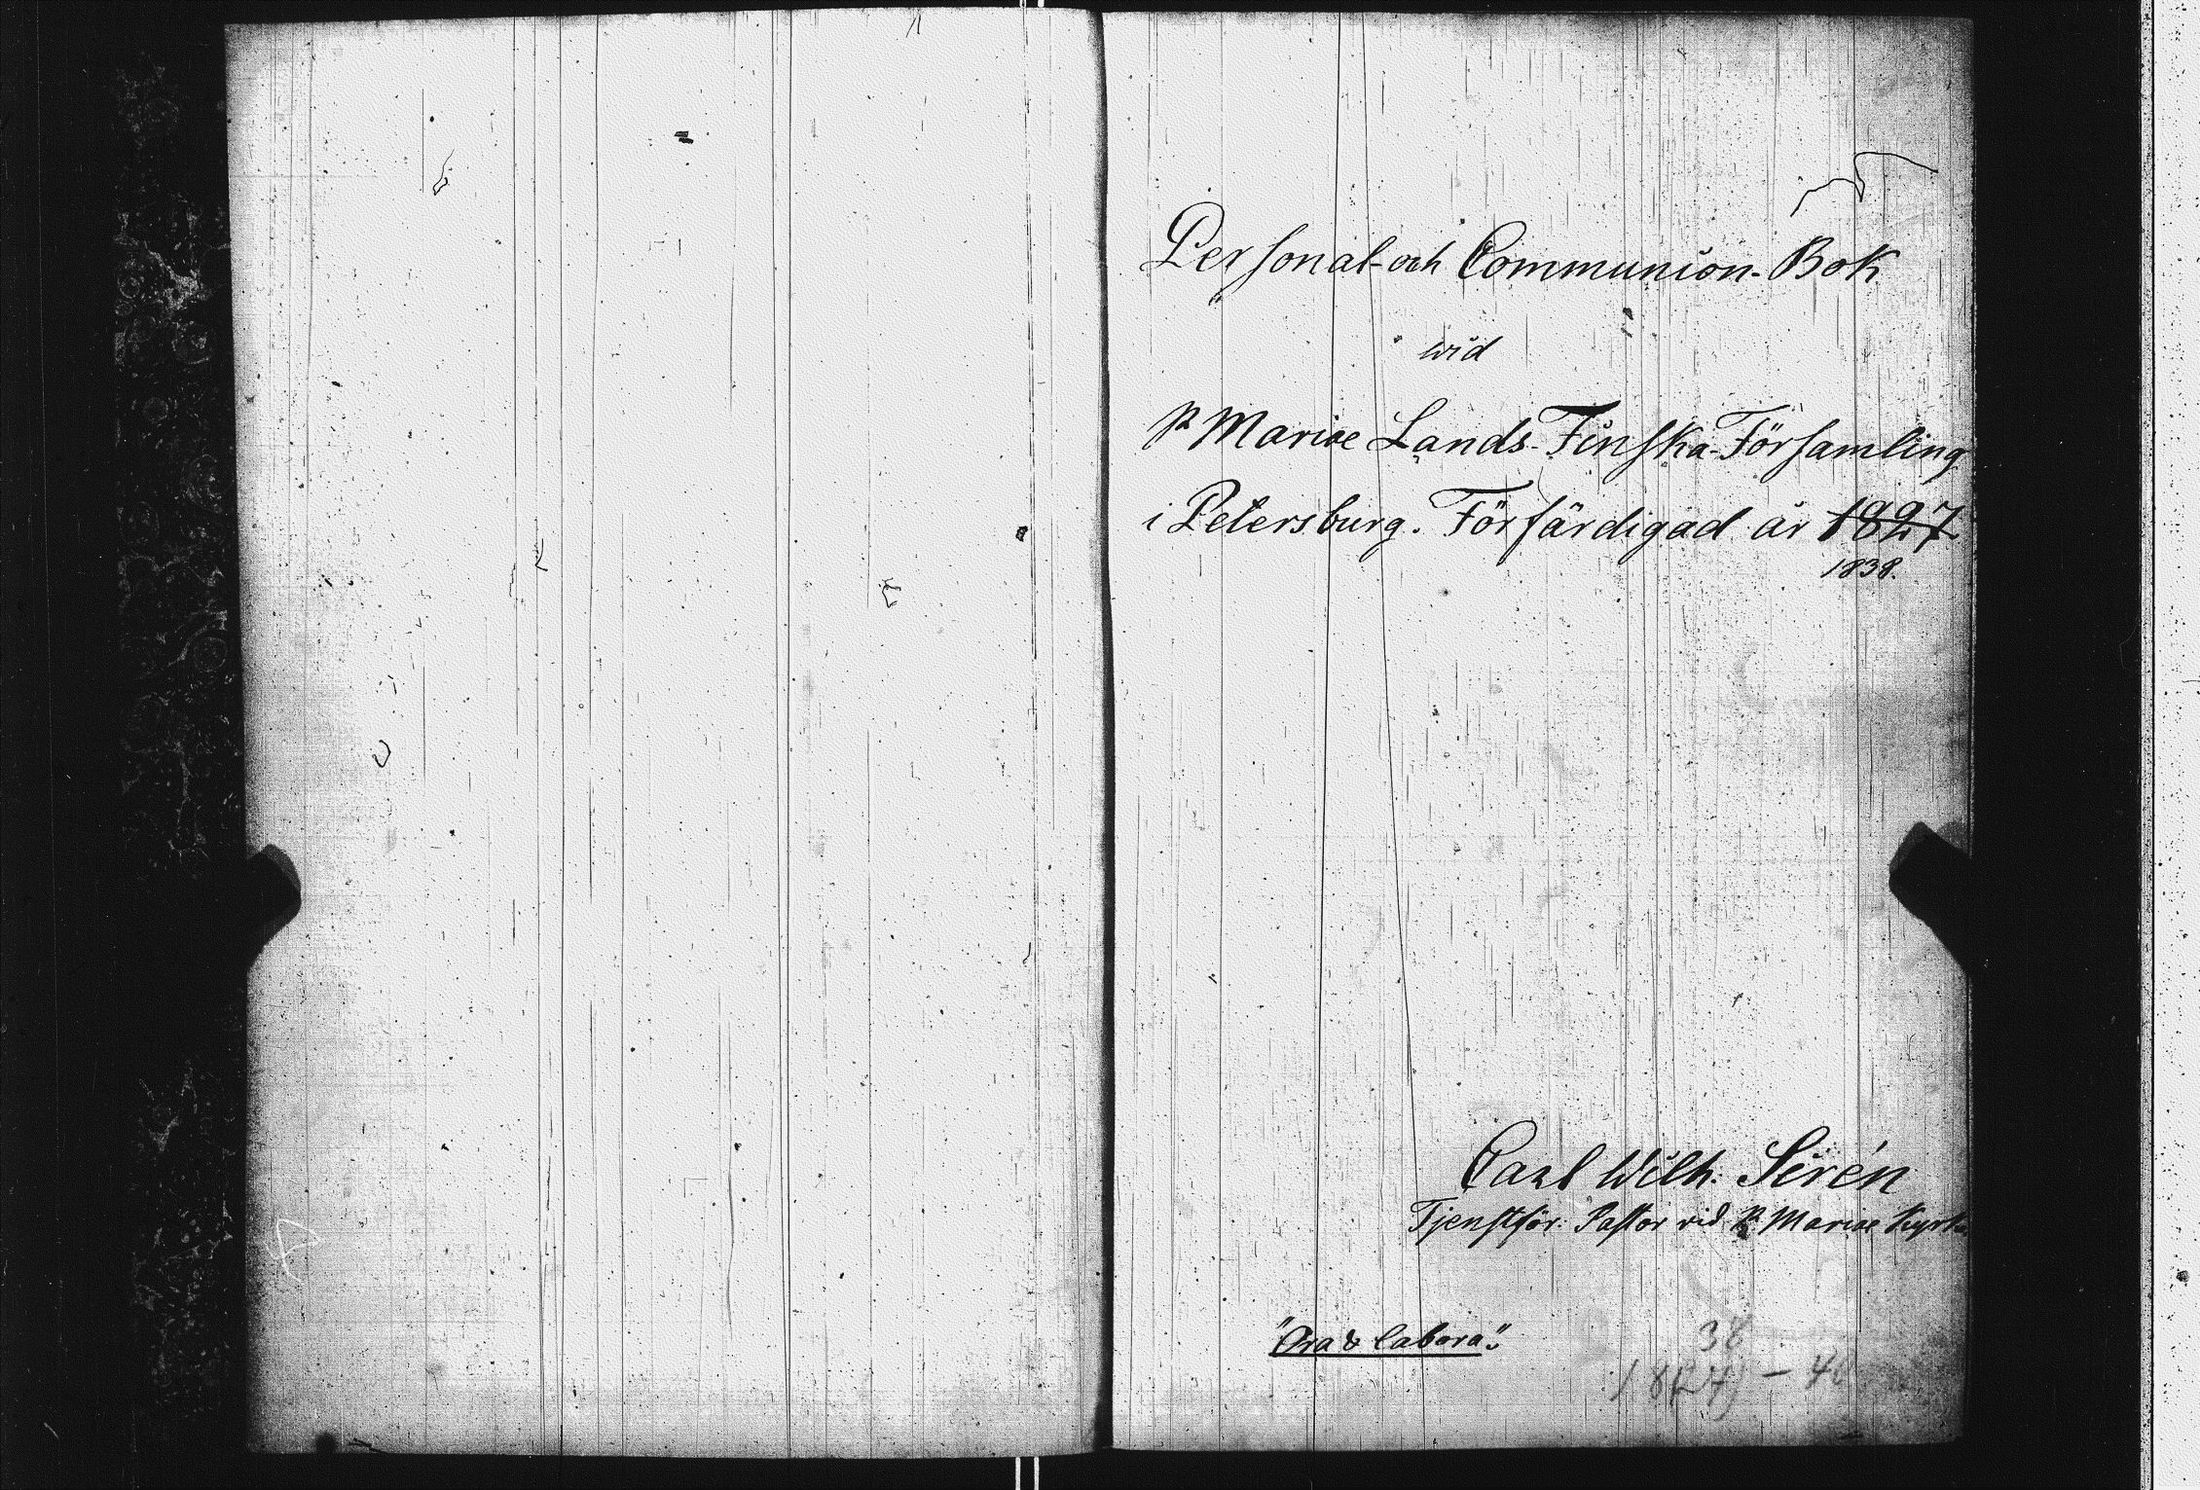 Personal- och Communion-Bok
wid
Mariae Lands-Finska-Församling
i Petersburg. Förfärdigad år 1827
1838.
Carl Wilh. Sirén
Tjenstför. Pastor vid Mariae Kyrka
"Ora & labora".
38